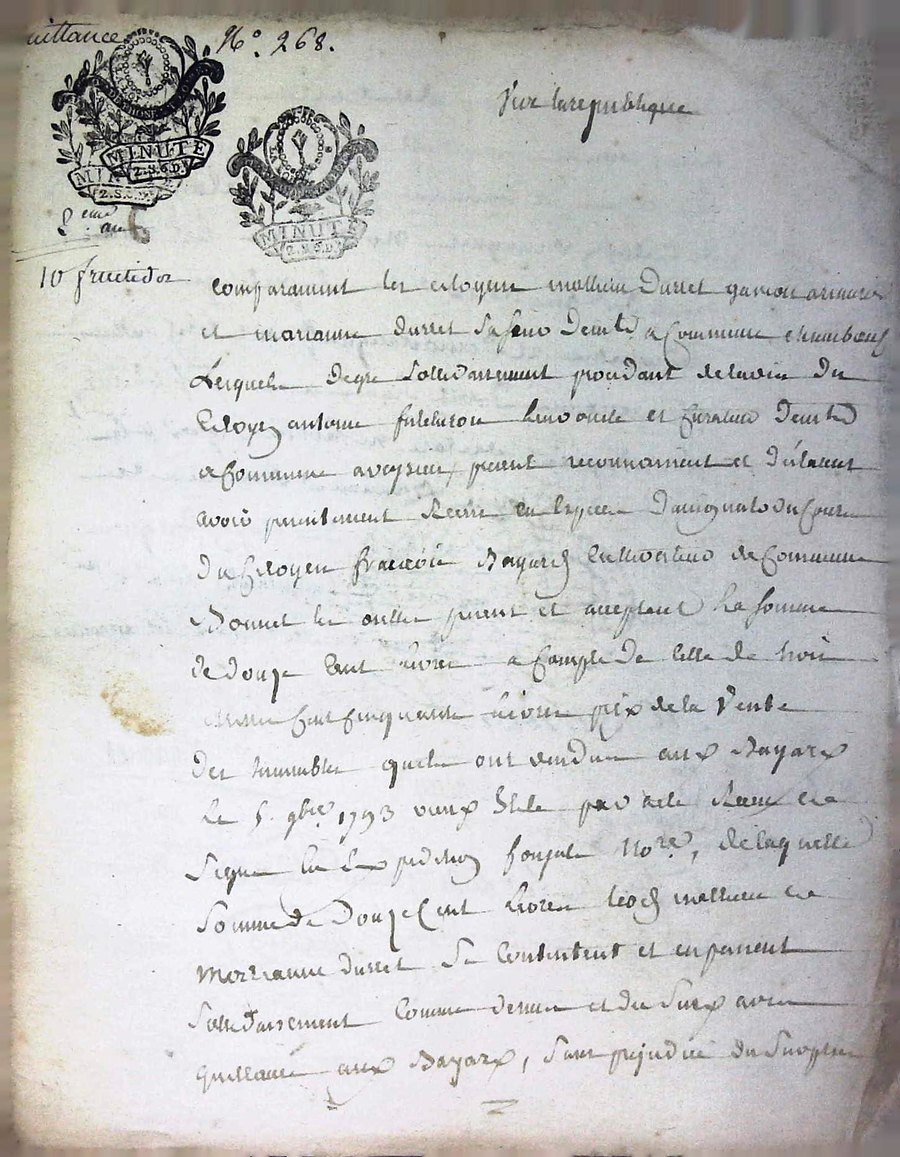 uittance
N.o 268.
Vive la republique
MINUTE
2.S.6.D.
MINUTE
2.S.6.D.
MINUTE
2.S.6.D.
8.eme an 6
10 fructidor
comparaissent les citoyens mathieu Durret garçon
et marianne durret sa soeur commune
Lesquels degré sollidairement procédant de lavis du
Citoyen antoine et Curateur
Commune aveysieu, present reconnaissent et déclarent
avoir presentement Receu en Especes
Du Citoyen françois Bayard cultivateur de Commune
Bonnet les oulles present et acceptant La somme
de douze Cent livres a Compte de Celle de trois
mille Cent Cinquante livres prix de la Vente
Des immeubles quels ont vendus aux Bayard
Le 5. 9bre 1793 vieux Stile par acte Receu et
Signé En Expedition Nore, de laquelle
Somme de Douze Cent livres lesd mathieu et
Marianne durret Se Contentent et en passent
Sollidairement Comme dessus
quittance aux Bayard, Sans prejudice du Surplus